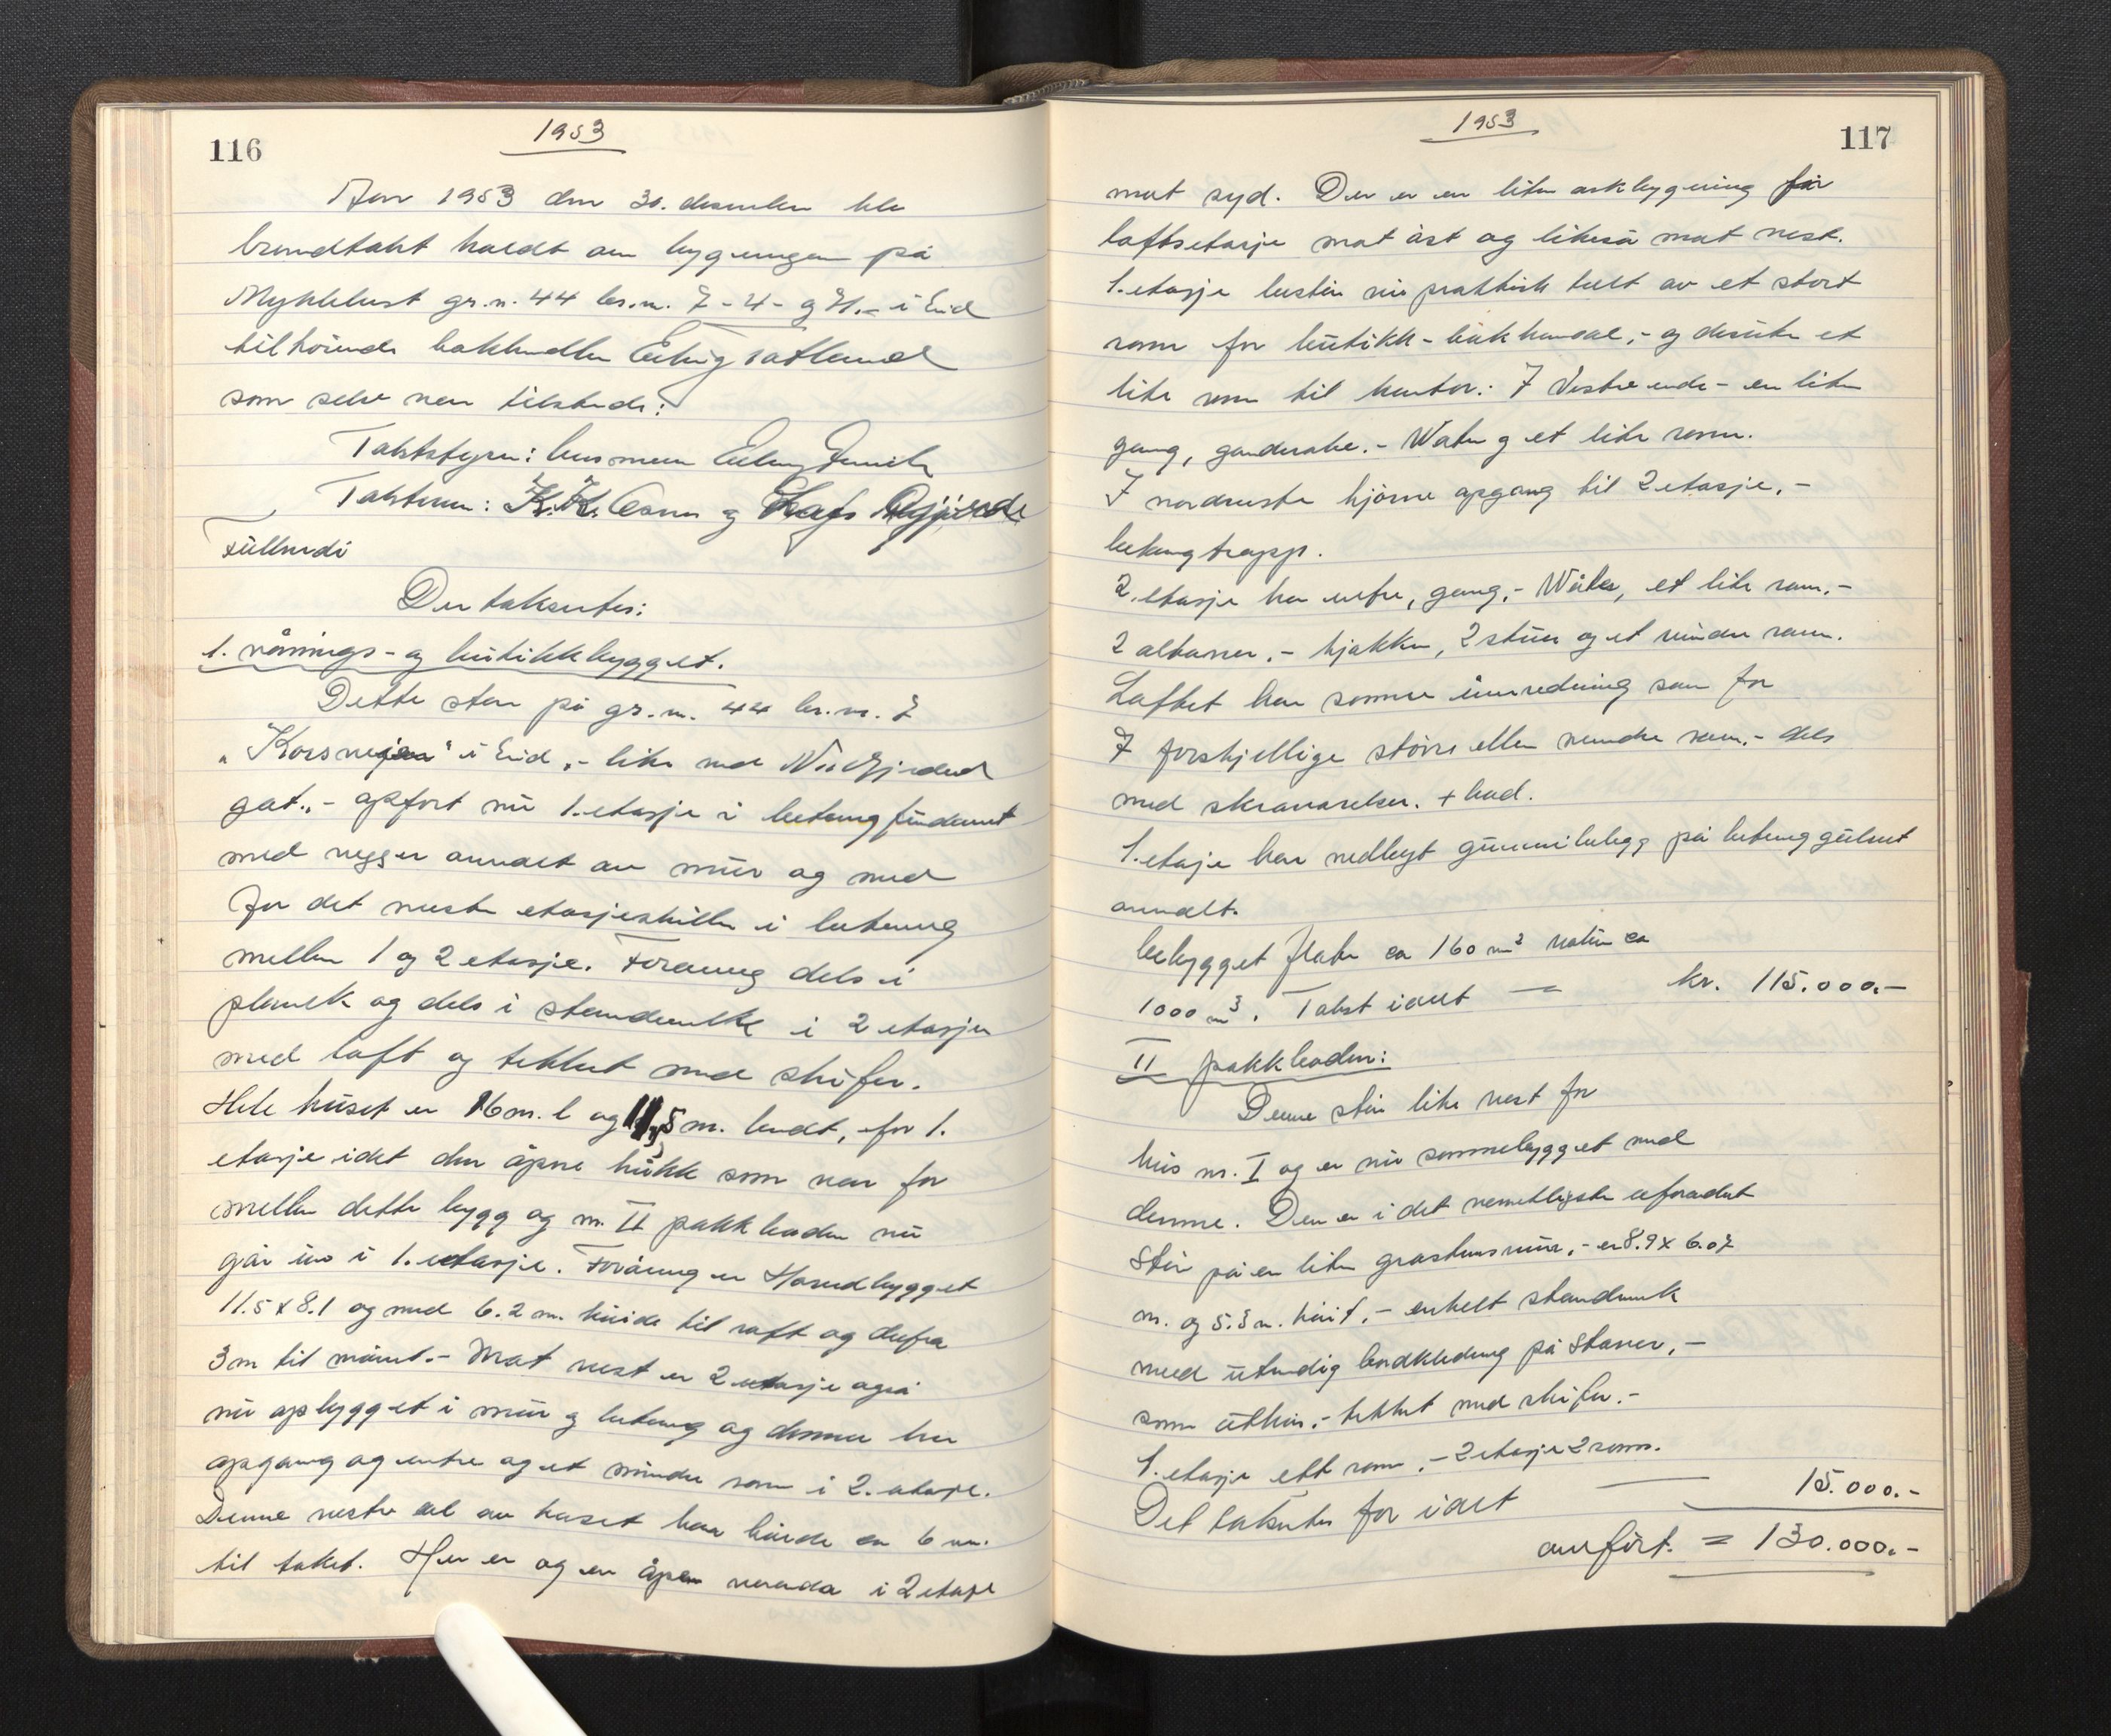 116
1953
Aar 1953 den 30. desember ble
brandtakt holdt over bygninger på
Myklebust gr.n. 44 br.n. 7 - 4 - og 71.- i Eid
tilhörende bokhandler Erling
som selv var tilstede:
Takststyrer: lensmann
Takstmenn: K. K. og
Fullmdi
Der takseertes:
1. vånings- og butikkbygget.
Dette står på gr.n. 44 br.nr. 7
"Korsvegen" i Eid ,- like ved Nordfjordeid
gat.,- opfort nu 1. etasje i betongfundament
med vegger annalt av mur og med
for det meste etasjeskiller i betong
mellem 1 og 2 etasje. Forøvrig dels i
plank og dels i standverkk i 2 etasjer
med loft og tekket med skifer.
Hele huset er 16 m. l og 11,5 m. bredt, for 1.
etasje idet den åpne lukk som var for
mellem dette bygg og nr. II pakkboden nu
går inn i 1. etasje. Foröwrig er Hovedbygget
11.5 x 8.1 og med 6.2 m. höide til raft og derfra
3 m til mönet.- Mot vest er 2 etasje også
nu opbygget i mur og betong og denne har
opgang og entre og et mindre rom i 2. etasje.
Denne vestre del av huset har höide ca 6 m.
til taket. Her er og en åpen veranda i 2 etasje
1953
117
mot syd. Der er en liten arkbygning for
loftsetasje mot öst og likeså mot vest.
1. etasje består nu praktisk talt av et stort
rom for butikk - bokhandel,- og desuten et
lite rom til kontor. I Vestre ende - en liten
gang, garderobe.- Water og et lite rom.
I nordvestre hjörne opgang til 2 etasje,-
betongtrapp.
2. etasje har entre, gang,- Water, et lite rom,-
2 altaner,- kjökken, 2 stuer og et mindre rom.
Loftet har samme innredning som for
7 forskjellige större eller mindre rom,- dels
med skravarelser. + bad.
1. etasje har nedlagt gummibelegg på betonggulvet
annalt.
bebygget flate ca 160 m² volum ca
1000 m³. Takst i alt — kr. 115.000.-
II pakkboden:
Denne står like vest for
hus nr. I og er nu sammebygget med
denne. Den er i det vesentligste uforadret
Står på en liten gråstensmur,- er 8.9 x 6.07
m. og 5.3 m. höit,- enkelt standverk
med utvendig bordkledning på Staver,-
som uthus,- tekket med skifer.-
1. etasje ett rom ,- 2 etasje 2 rom.
Det taksertes for i alt — 15.000.-
overfört. = 130.000.-